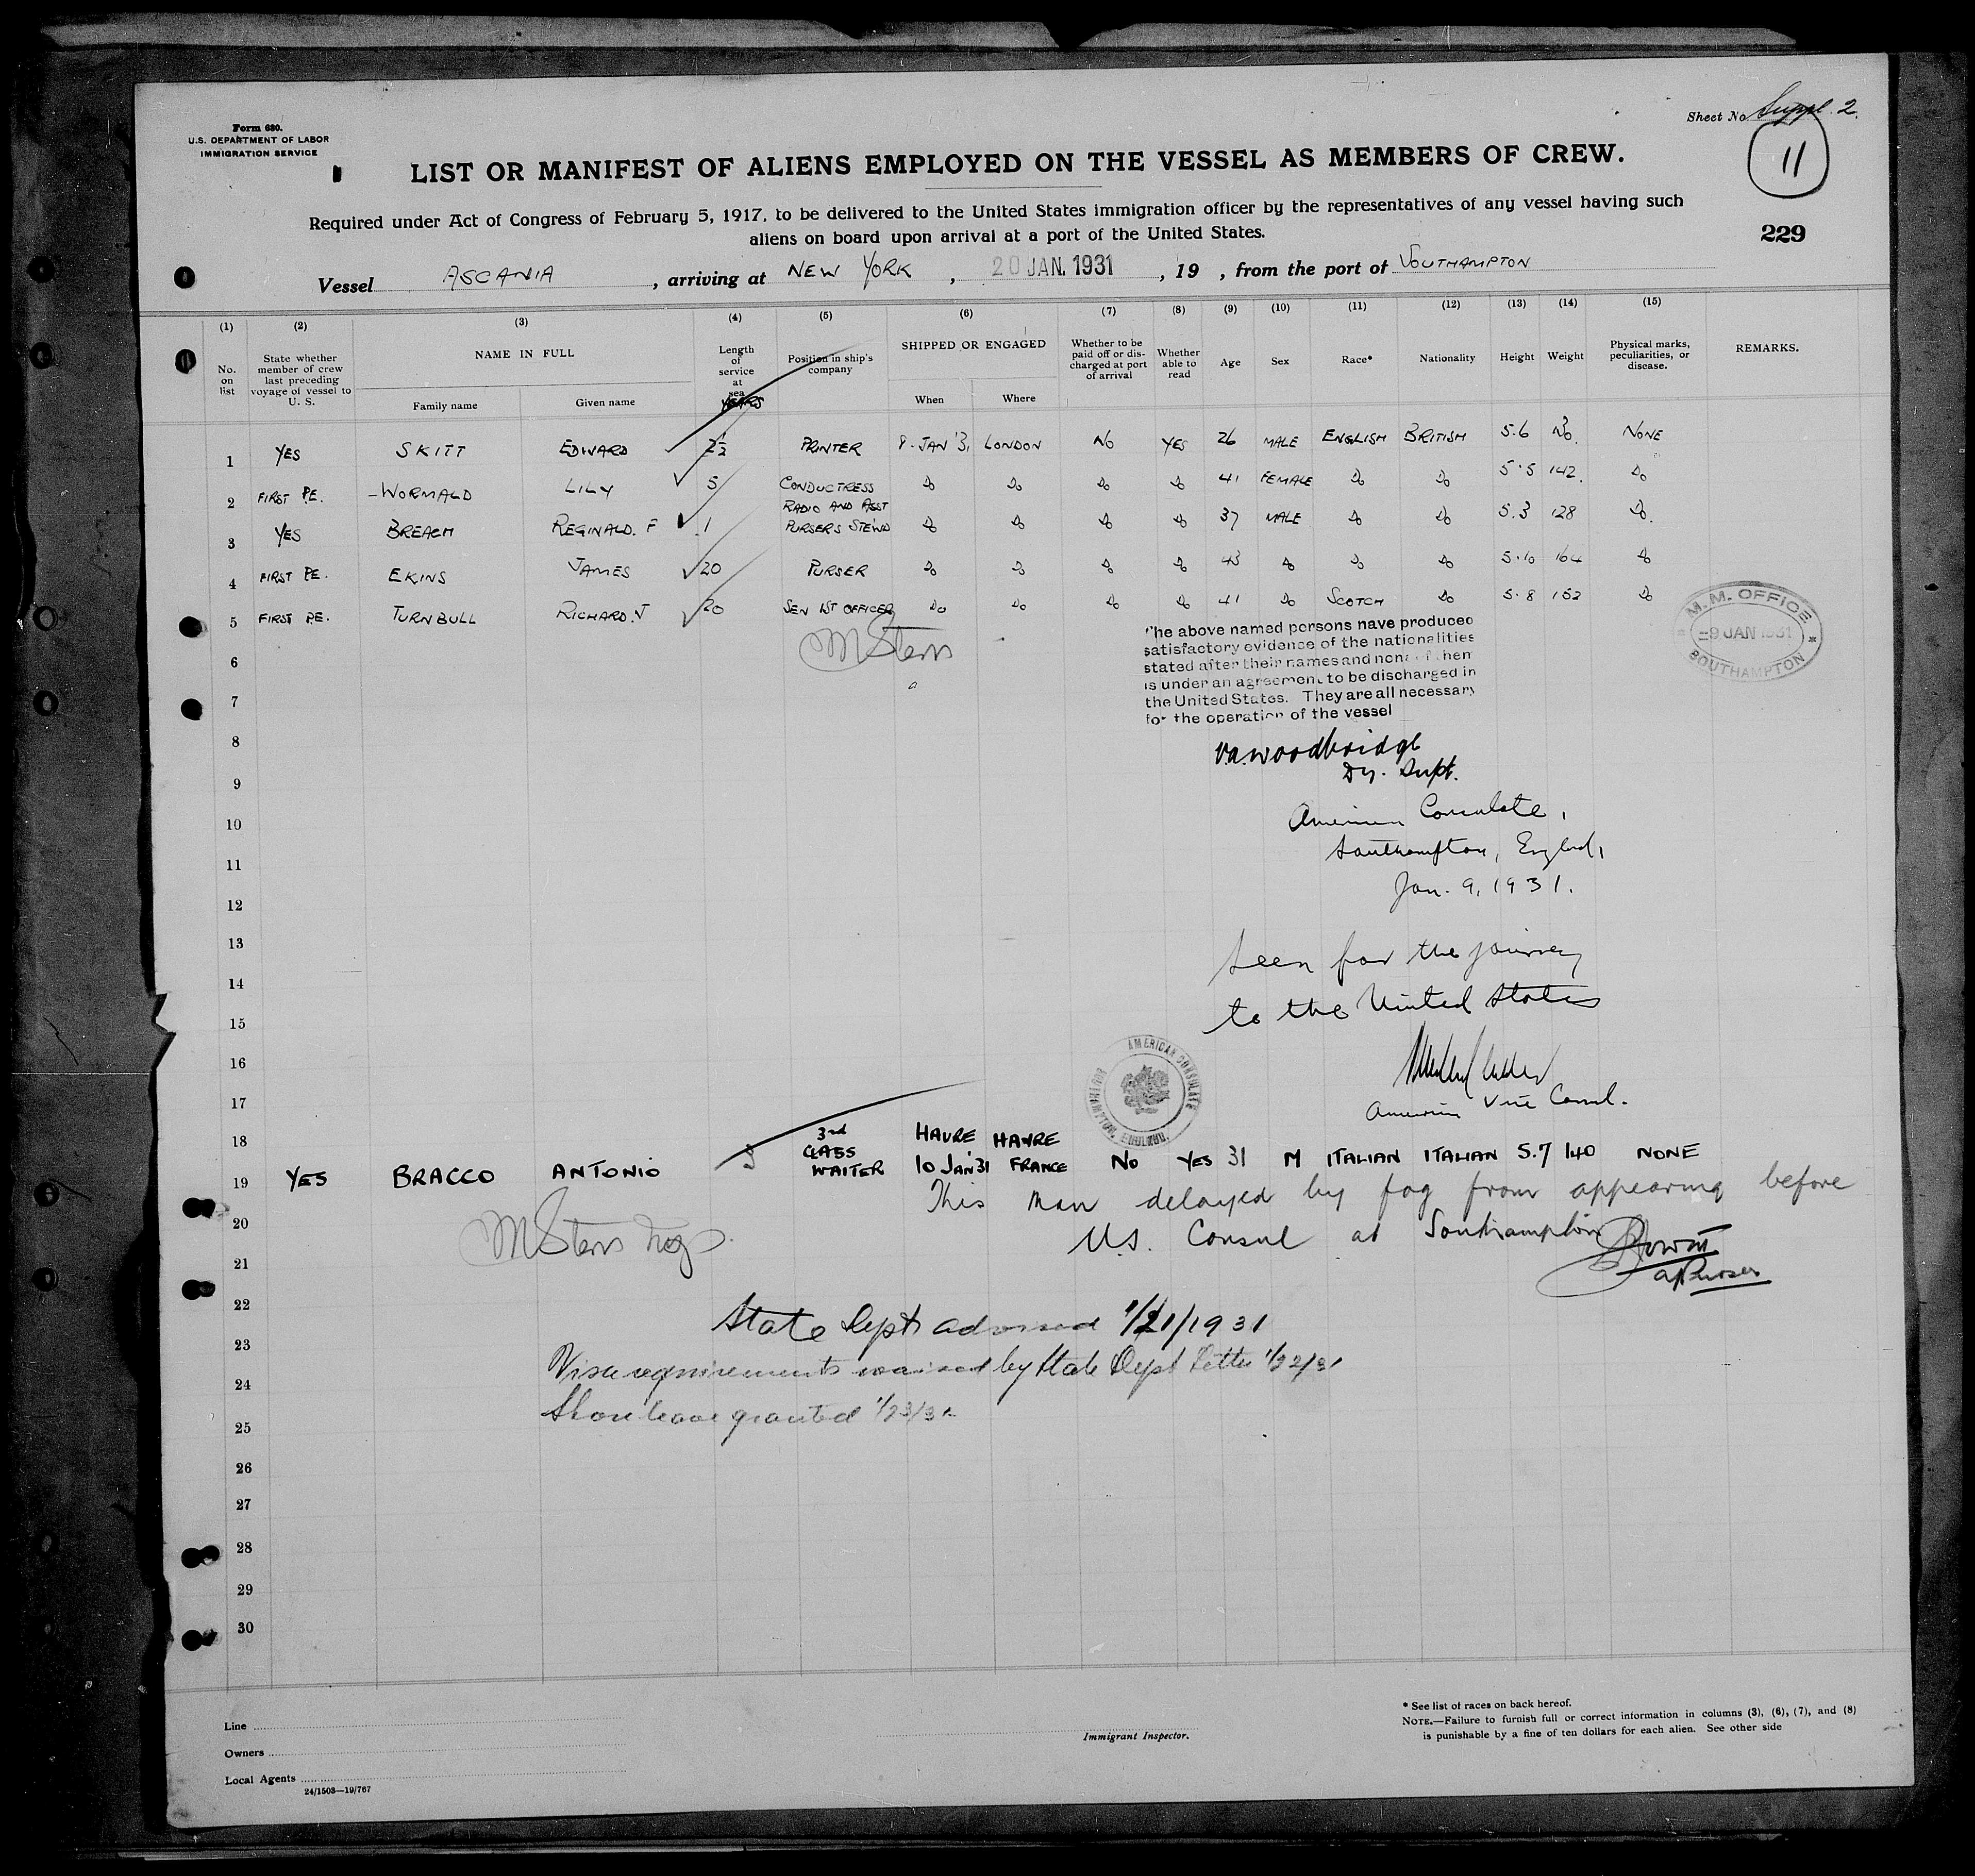 Form 680.
U.S. DEPARTMENT OF LABOR
IMMIGRATION SERVICE
Sheet No. Suppl. 2.
11
LIST OR MANIFEST OF ALIENS EMPLOYED ON THE VESSEL AS MEMBERS OF CREW.
Required under Act of Congress of February 5, 1917, to be delivered to the United States immigration officer by the representatives of any vessel having such
aliens on board upon arrival at a port of the United States.
229
Vessel ASCANIA, arriving at NEW YORK, 20 JAN. 1931, 19 , from the port of SOUTHAMPTON
(1) (2) (3) (4) (5) (6) (7) (8) (9) (10) (11) (12) (13) (14) (15)
No. on list
State whether member of crew last preceding voyage of vessel to U. S.
NAME IN FULL
Family name
Given name
Length of service at sea
YEARS
Position in ship's company
SHIPPED OR ENGAGED
When
Where
Whether to be paid off or discharged at port of arrival
Whether able to read
Age
Sex
Race*
Nationality
Height
Weight
Physical marks, peculiarities, or disease.
REMARKS.
1 YES SKITT EDWARD 2½ PRINTER 8 JAN '31 LONDON NO YES 26 MALE ENGLISH BRITISH 5.6 NONE
2 FIRST PE. WORMALD LILY 5 CONDUCTRESS Do Do Do Do 41 FEMALE Do Do 5.5 142 Do
3 YES BREACH REGINALD. F 1 RADIO AND ASST PURSERS STEWD Do Do Do Do 37 MALE Do Do 5.3 128 Do.
4 FIRST PE. EKINS JAMES 20 PURSER Do Do Do Do 43 Do Do Do 5.10 164 Do
5 FIRST PE. TURNBULL RICHARD. J 20 SEN 1ST OFFICER Do Do Do Do 41 Do SCOTCH Do 5.8 152 Do
6
7
8
9
10
11
12
13
14
15
16
17
18
MStern
The above named persons have produced
satisfactory evidence of the nationalities
stated after their names and none of them
is under an agreement to be discharged in
the United States. They are all necessary
for the operation of the vessel
M.M. OFFICE
9 JAN 1931
SOUTHAMPTON
V.A. Woodbridge
Dy. Supt.
American Consulate,
Southampton, England,
Jan. 9, 1931.
Seen for the journey
to the United States
American Vice Consul.
AMERICAN CONSULATE
SOUTHAMPTON, ENGLAND.
19 YES BRACCO ANTONIO 3rd CLASS WAITER HAVRE 10 JAN 31 HAVRE FRANCE NO YES 31 M ITALIAN ITALIAN 5.7 140 NONE
This man delayed by fog from appearing before
U.S. Consul at Southampton
MStern
20
21
22
23
24
25
26
27
28
29
30
State Dept advised 1/21/1931
Visa requirements waived by State Dept letter 1/22/31
Shore leave granted 1/23/31
Line
Owners
Local Agents
24/1503—19/767
Immigrant Inspector.
* See list of races on back hereof.
NOTE.—Failure to furnish full or correct information in columns (3), (6), (7), and (8)
is punishable by a fine of ten dollars for each alien. See other side